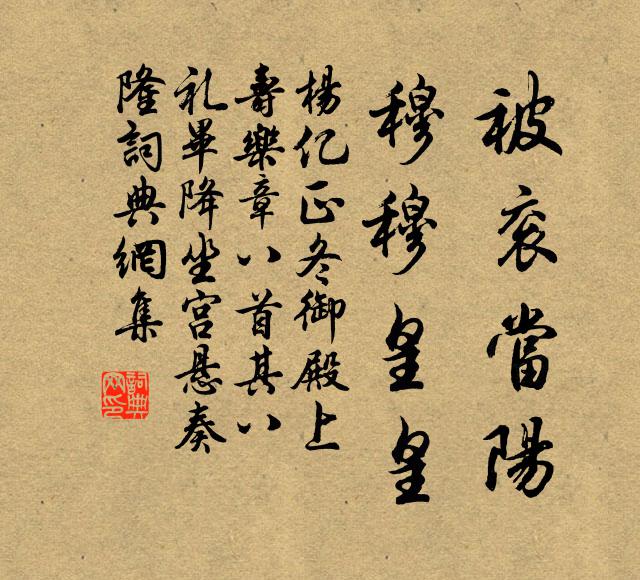 被衮當陽
穆穆皇皇
楊亿正冬御殿上
壽樂章八首其八
礼畢降坐宫悬奏
隆詞典網集
詞典網印